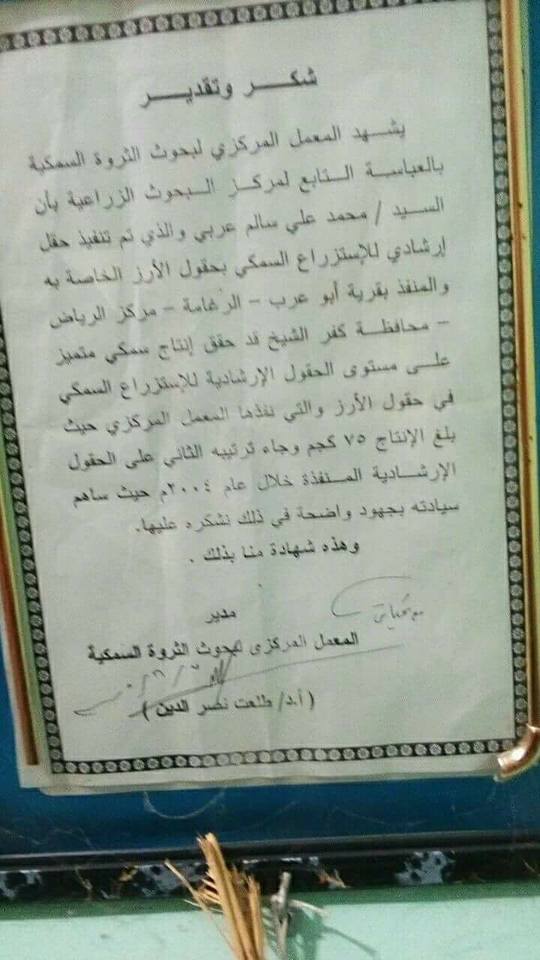 شكر وتقدير
يشهد المعمل المركزي لبحوث الثروة السمكية
بالعباسة التابع لمركز البحوث الزراعية بأن
السيد / محمد علي سالم عربي والذي تم تنفيذ حقل
إرشادي للإستزراع السمكي بحقول الأرز الخاصة به
والمنفذ بقرية أبو عرب - الرغامة - مركز الرياض
- محافظة كفر الشيخ قد حقق إنتاج سمكي متميز
على مستوى الحقول الإرشادية للإستزراع السمكي
في حقول الأرز والتي نفذها المعمل المركزي حيث
بلغ الإنتاج ٧٥ كجم وجاء ترتيبه الثاني على الحقول
الإرشادية المنفذة خلال عام ٢٠٠٤م حيث ساهم
سيادته بجهود واضحة في ذلك نشكره عليها.
وهذه شهادة منا بذلك .
مع تحياتى
مدير
المعمل المركزى لبحوث الثروة السمكية
( أ.د/ طلعت نصر الدين )